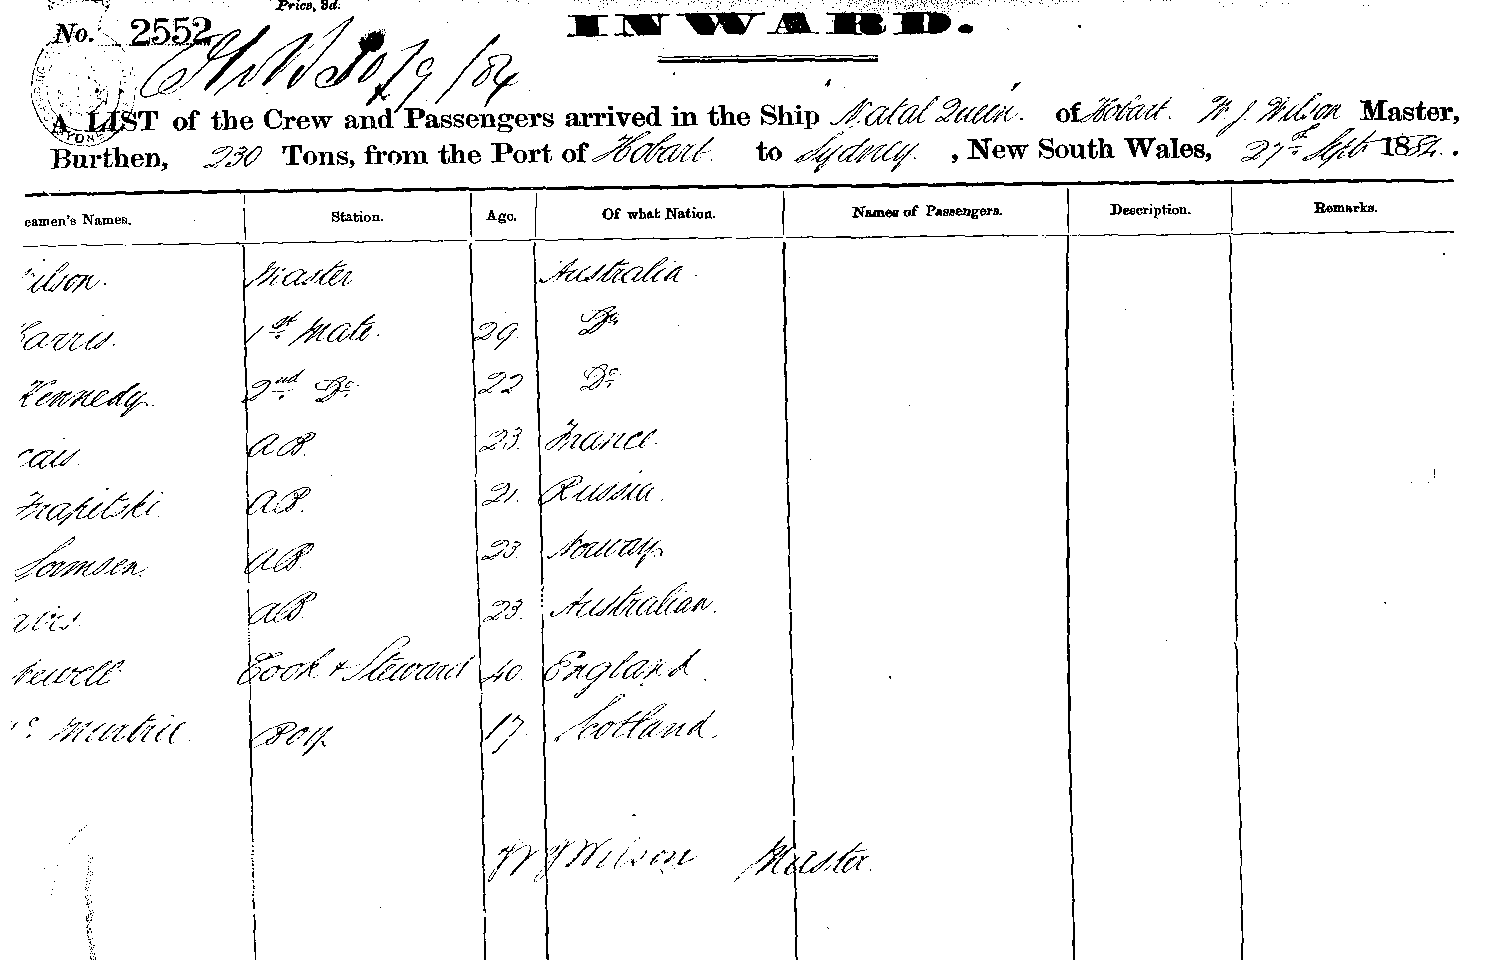 Price, 3d.
No. 2552
INWARD.
30/9/84
A LIST of the Crew and Passengers arrived in the Ship Natal Queen. of Hobart. W. J. Wilson Master,
Burthen, 230 Tons, from the Port of Hobart. to Sydney. , New South Wales, 27th Sept 1884.
eamen's Names. Station. Age. Of what Nation. Names of Passengers. Description. Remarks.
ilson. Master Australia.
arris. 1st Mate. 29. Do
Kennedy. 2nd Do. 22 Do
AB. 23. France.
AB. 21. Russia.
AB 23. Norway.
AB 23. Australian.
ewell Cook & Steward 40. England.
Murtrie. Boy 17. Scotland.
W J Wilson Master.